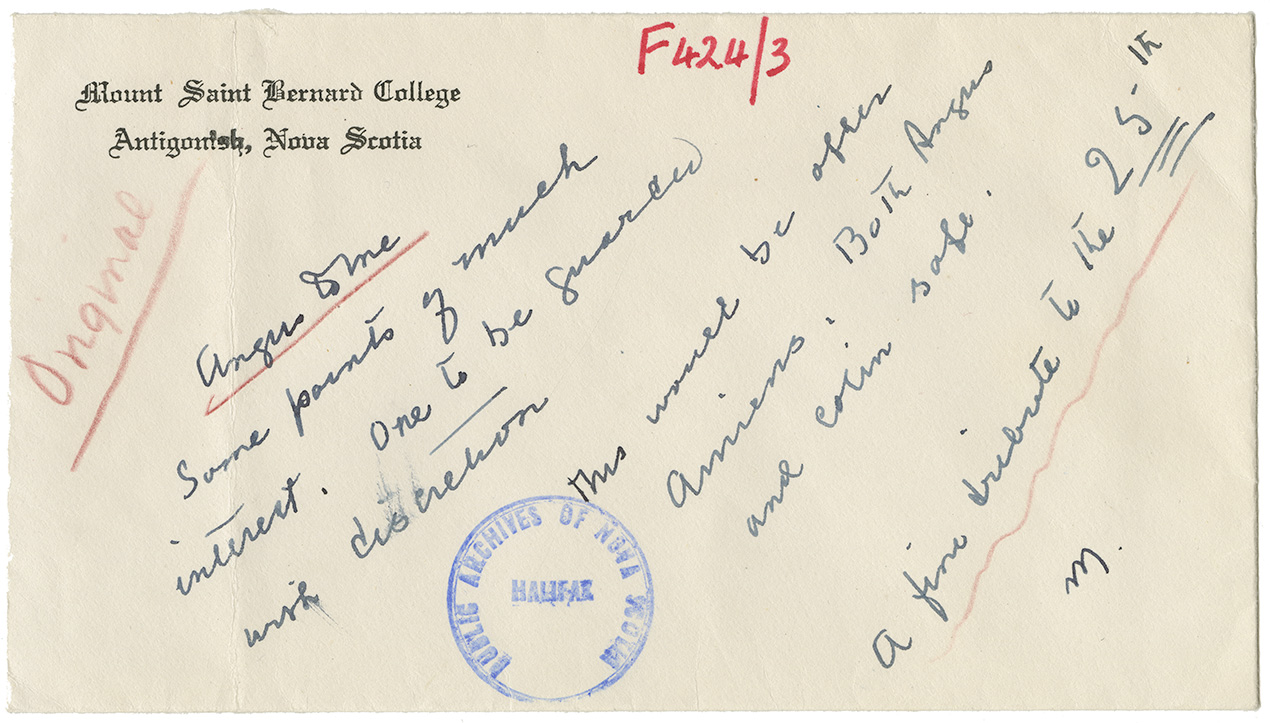 F424/3
Mount Saint Bernard College
Antigonish, Nova Scotia
Original
Angus to me
Some points of much
interest. One to be guarded
with discretion
This would be after
Amiens. Both Angus
and Colin safe.
A fine tribute to the 25th
M.
PUBLIC ARCHIVES OF NOVA SCOTIA
HALIFAX